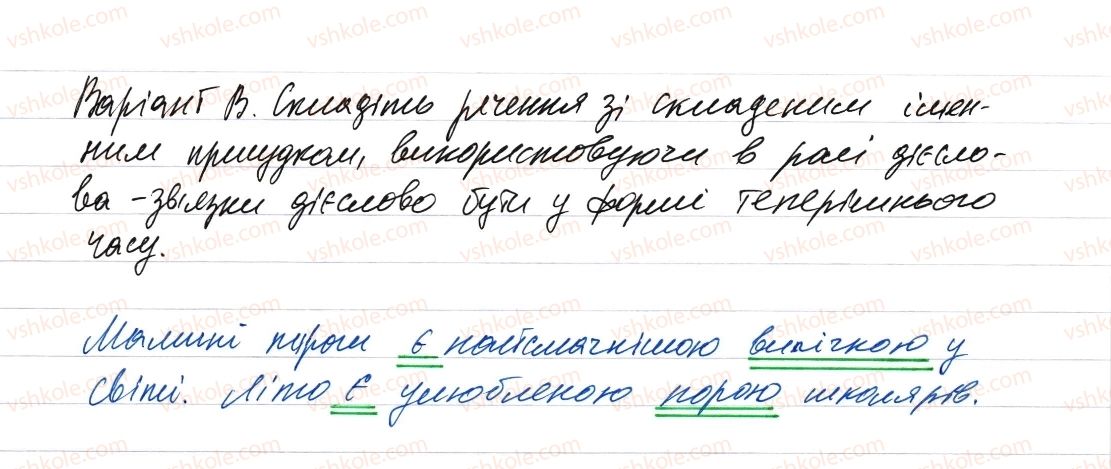 Варіант В. Складіть речення зі складеним імен-
ним присудком, використовуючи в ролі дієсло-
ва-зв'язки дієслово бути у формі теперішнього
часу.
Мамині пироги є найсмачнішою випічкою у
світі. Літо є улюбленою порою школярів.